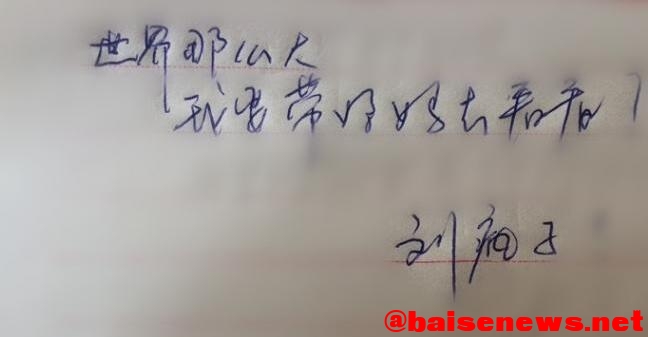 世界那么大
我要带妈妈去看看!
刘痴子
@baisenews.net